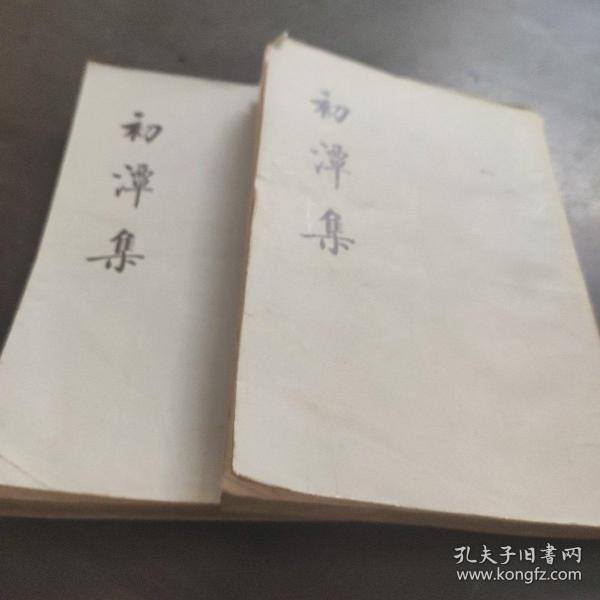 初潭集
初潭集
孔夫子旧書网
www.kongfz.com